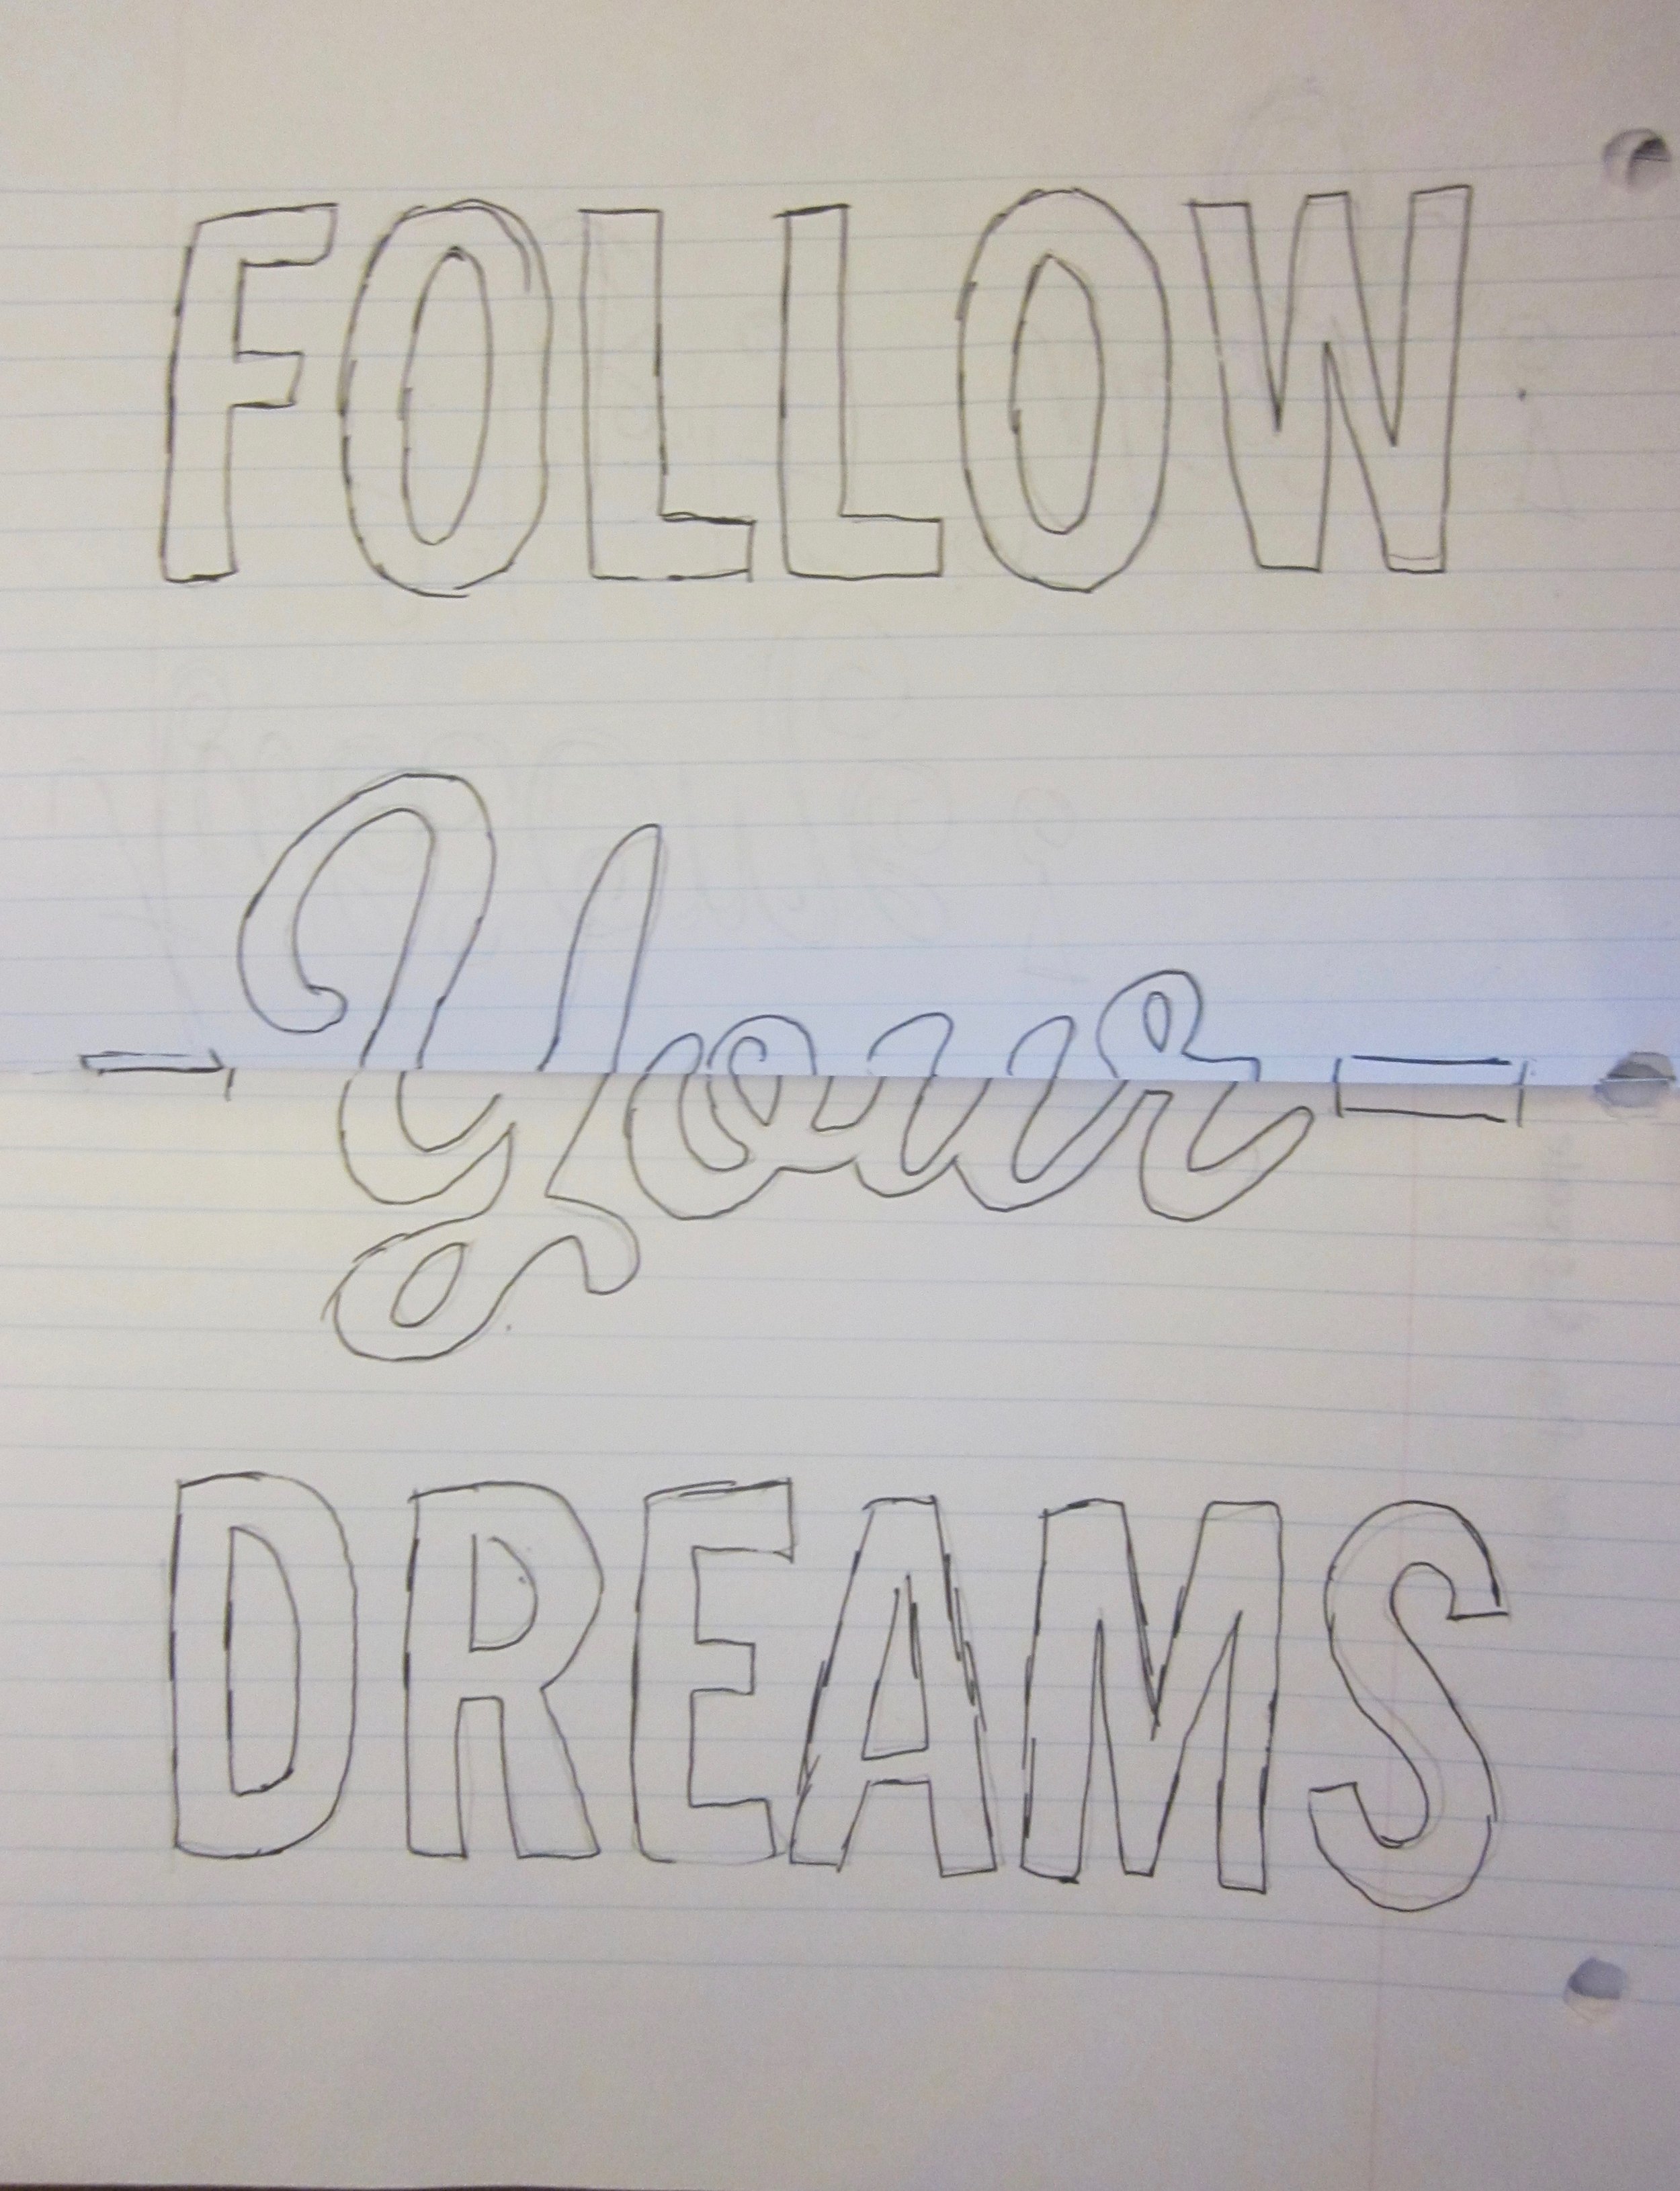 FOLLOW
Your
DREAMS